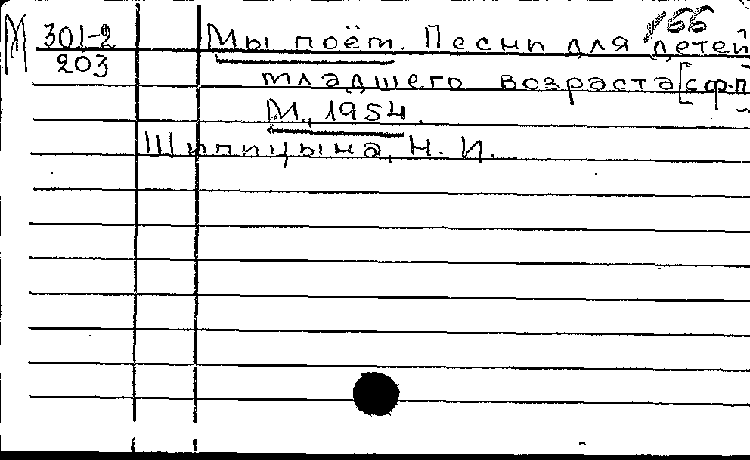 166
М 301-2 Мы поём. Песни для детей
203 младшего возраста [с ф-п]
М., 1954.
Шипицына, Н. И.